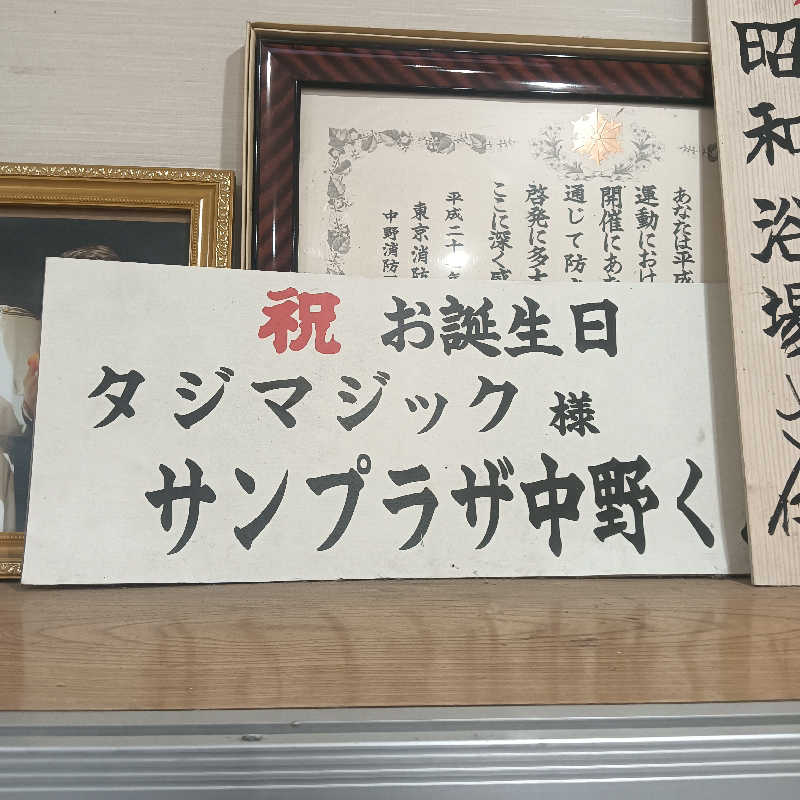 祝 お誕生日
タジマジック 様
サンプラザ中野く
昭和浴場
あなたは平成
運動におけ
開催にあ
通じて防
啓発に多大
ここに深く感
平成二十
東京消防
中野消防